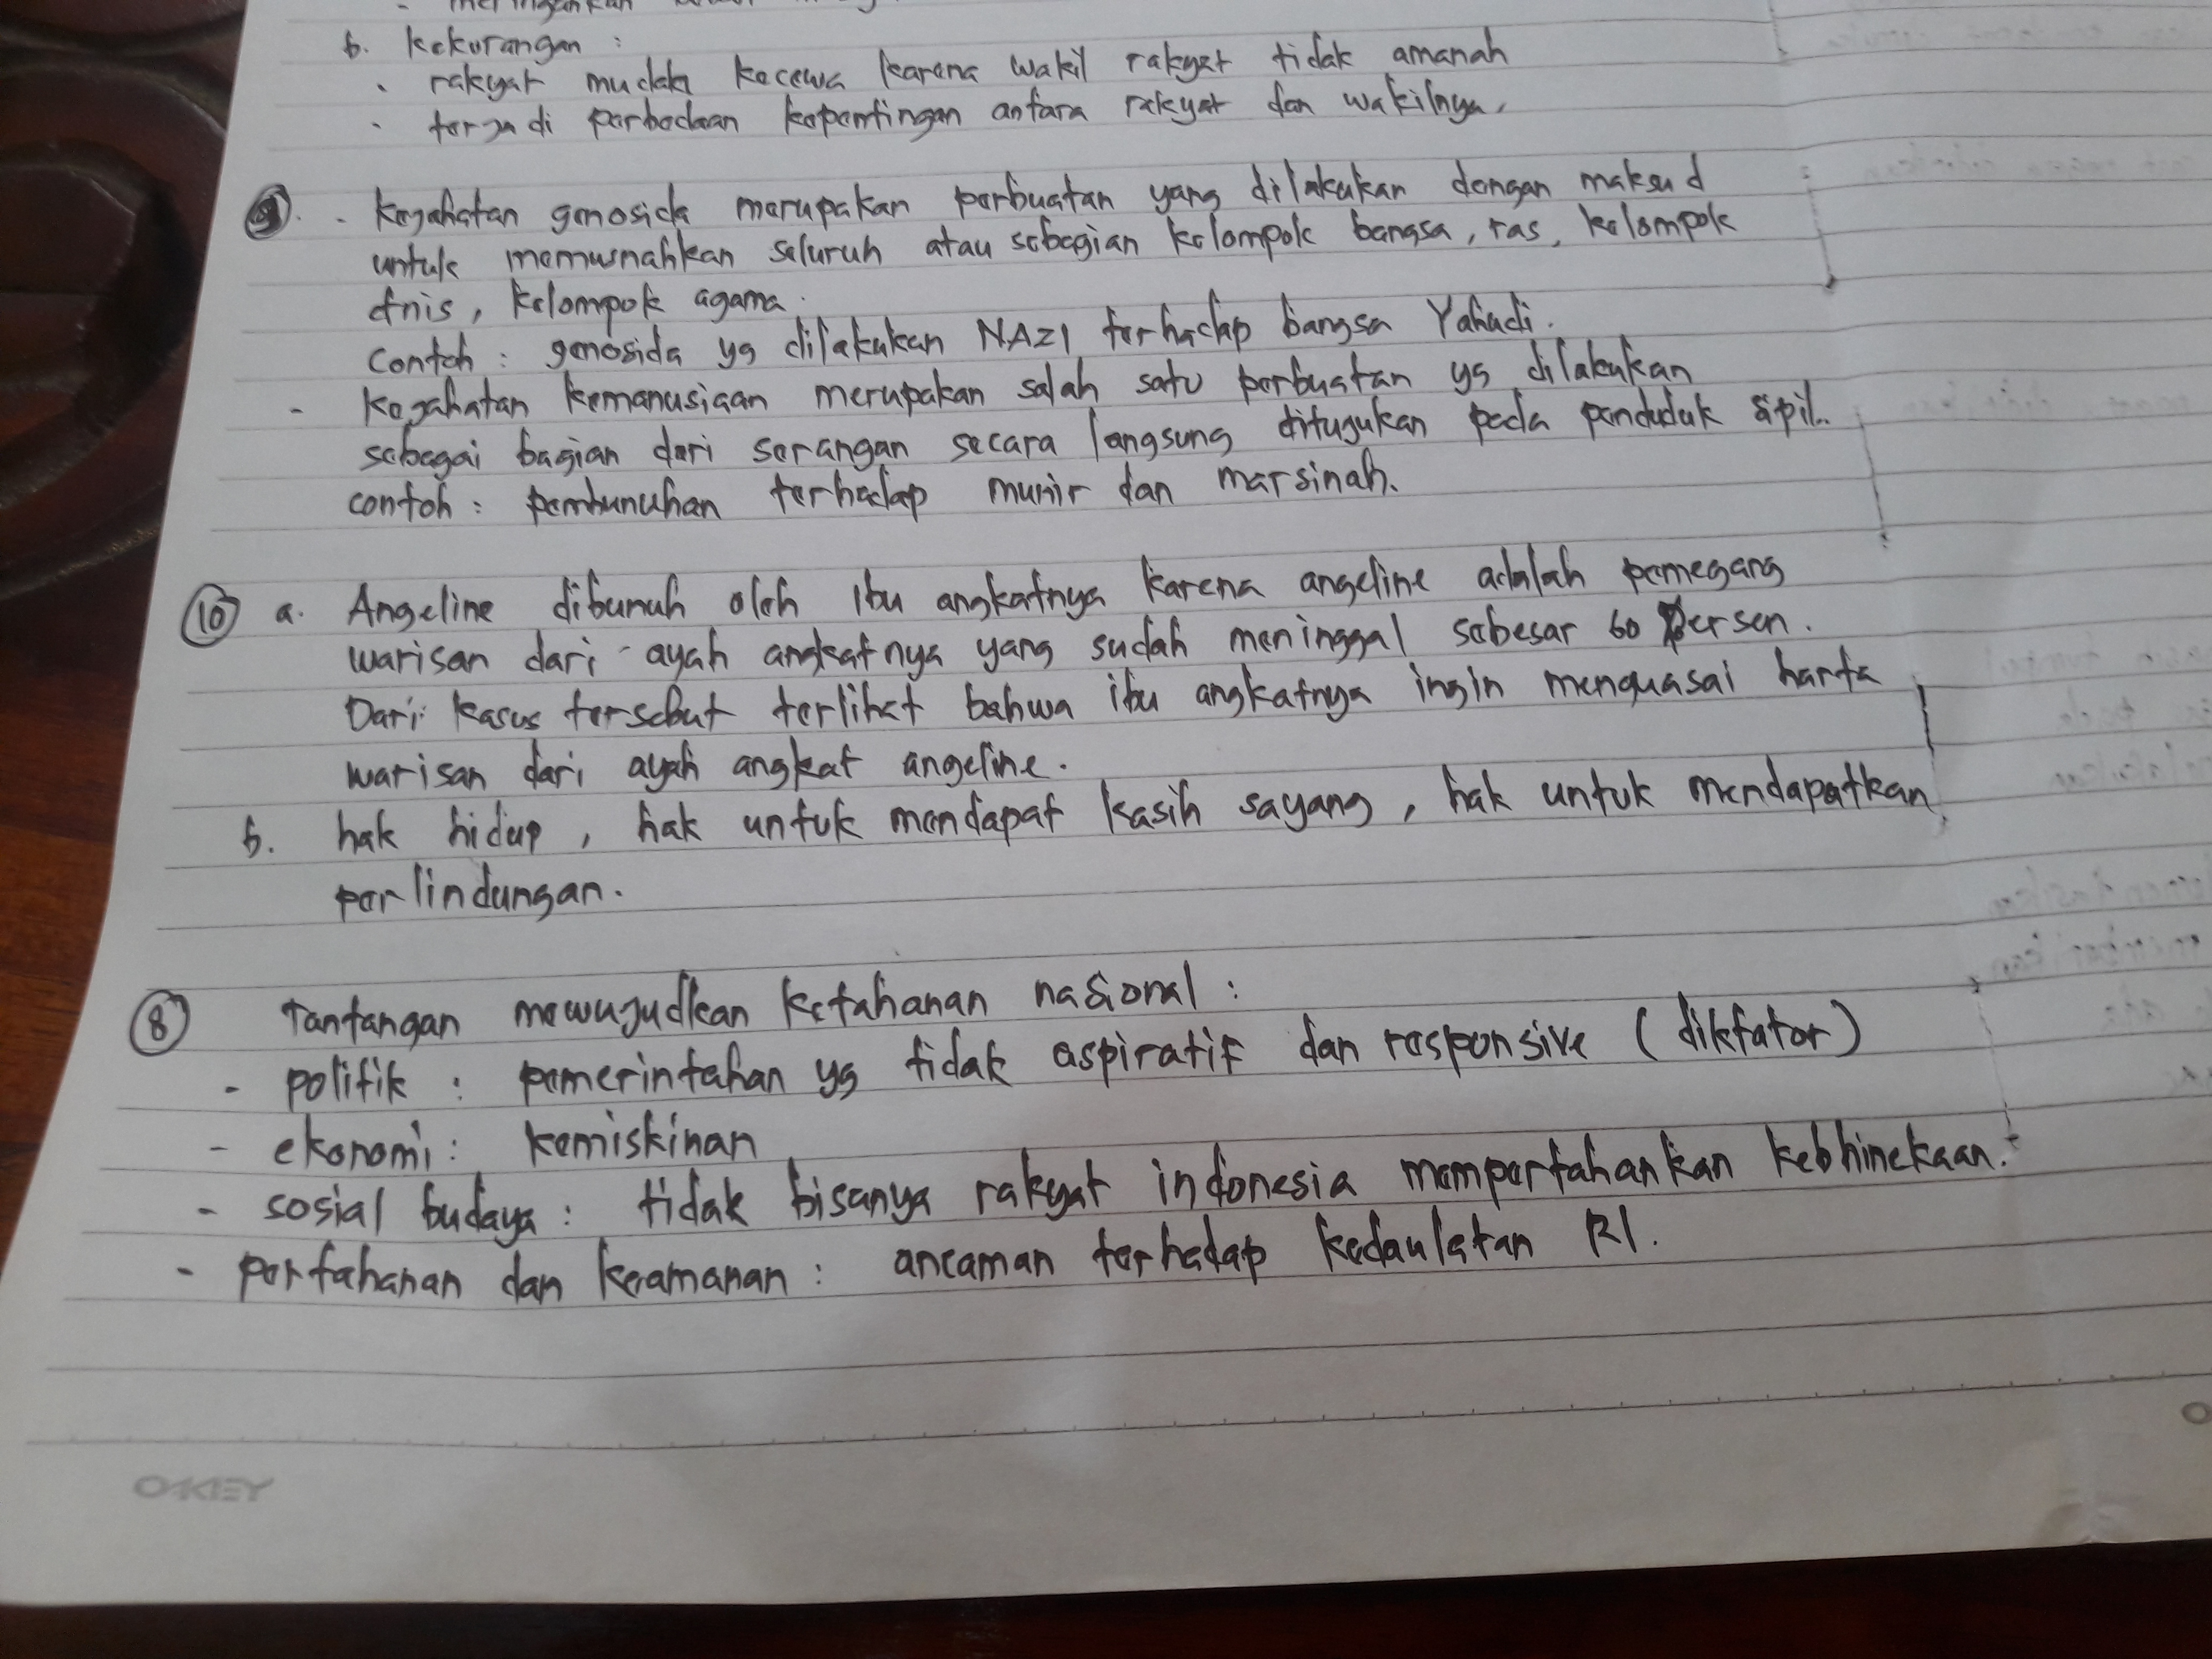 b. kekurangan :
. rakyat mudah kecewa karena wakil rakyat tidak amanah
. terjadi perbedaan kepentingan antara rakyat dan wakilnya.
9. - Kejahatan genosida merupakan perbuatan yang dilakukan dengan maksud
untuk memusnahkan seluruh atau sebagian kelompok bangsa, ras, kelompok
etnis, kelompok agama.
Contoh : genosida yg dilakukan NAZI terhadap bangsa Yahudi.
- Kejahatan kemanusiaan merupakan salah satu perbuatan yg dilakukan
sebagai bagian dari serangan secara langsung ditujukan pada penduduk sipil.
contoh : pembunuhan terhadap munir dan marsinah.
10 a. Angeline dibunuh oleh ibu angkatnya karena angeline adalah pemegang
warisan dari ayah angkatnya yang sudah meninggal sebesar 60 persen.
Dari kasus tersebut terlihat bahwa ibu angkatnya ingin menguasai harta
warisan dari ayah angkat angeline.
b. hak hidup, hak untuk mendapat kasih sayang, hak untuk mendapatkan
perlindungan.
8 Tantangan mewujudkan ketahanan nasional :
- politik : pemerintahan yg tidak aspiratif dan responsive (diktator)
- ekonomi : kemiskinan
- sosial budaya : tidak bisanya rakyat indonesia mempertahankan kebhinekaan.
- pertahanan dan keamanan : ancaman terhadap kedaulatan RI.
OKEY